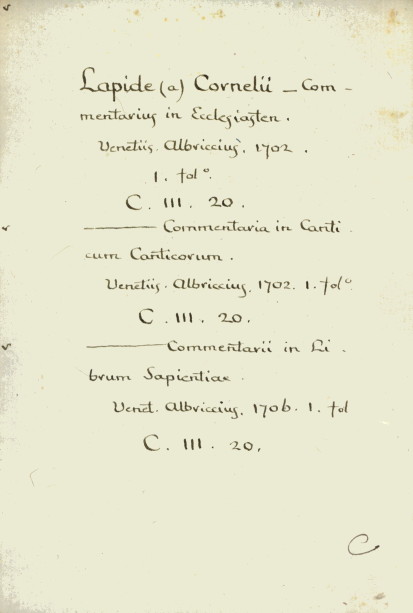 Lapide (a) Cornelii – Com-
mentarius in Ecclesiasten.
Venetiis. Albriccius, 1702.
1. folº.
C. III. 20.
——— Commentaria in Canti.
cum Canticorum.
Venetiis. Albriccius, 1702. 1. folº.
C. III. 20.
——— Commentarii in Li.
brum Sapientiae.
Venet. Albriccius, 1706. 1. fol
C. III. 20.
C